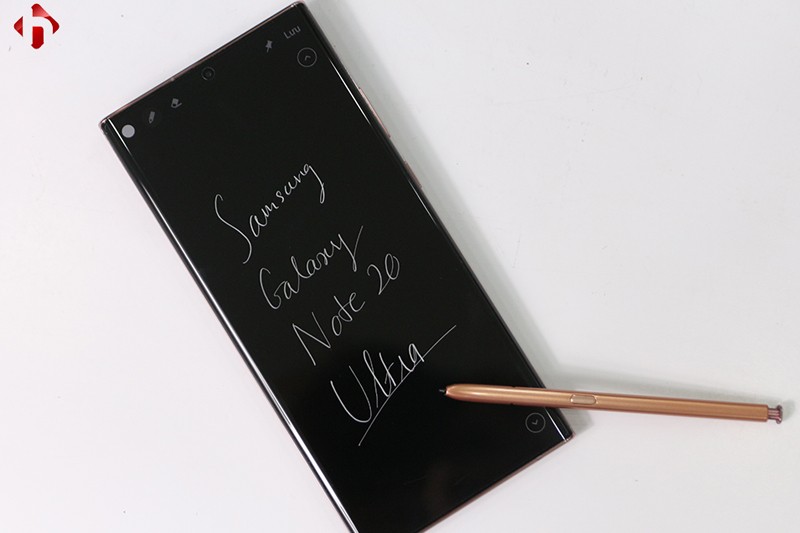 Lưu
Samsung
Galaxy
Note 20
Ultra